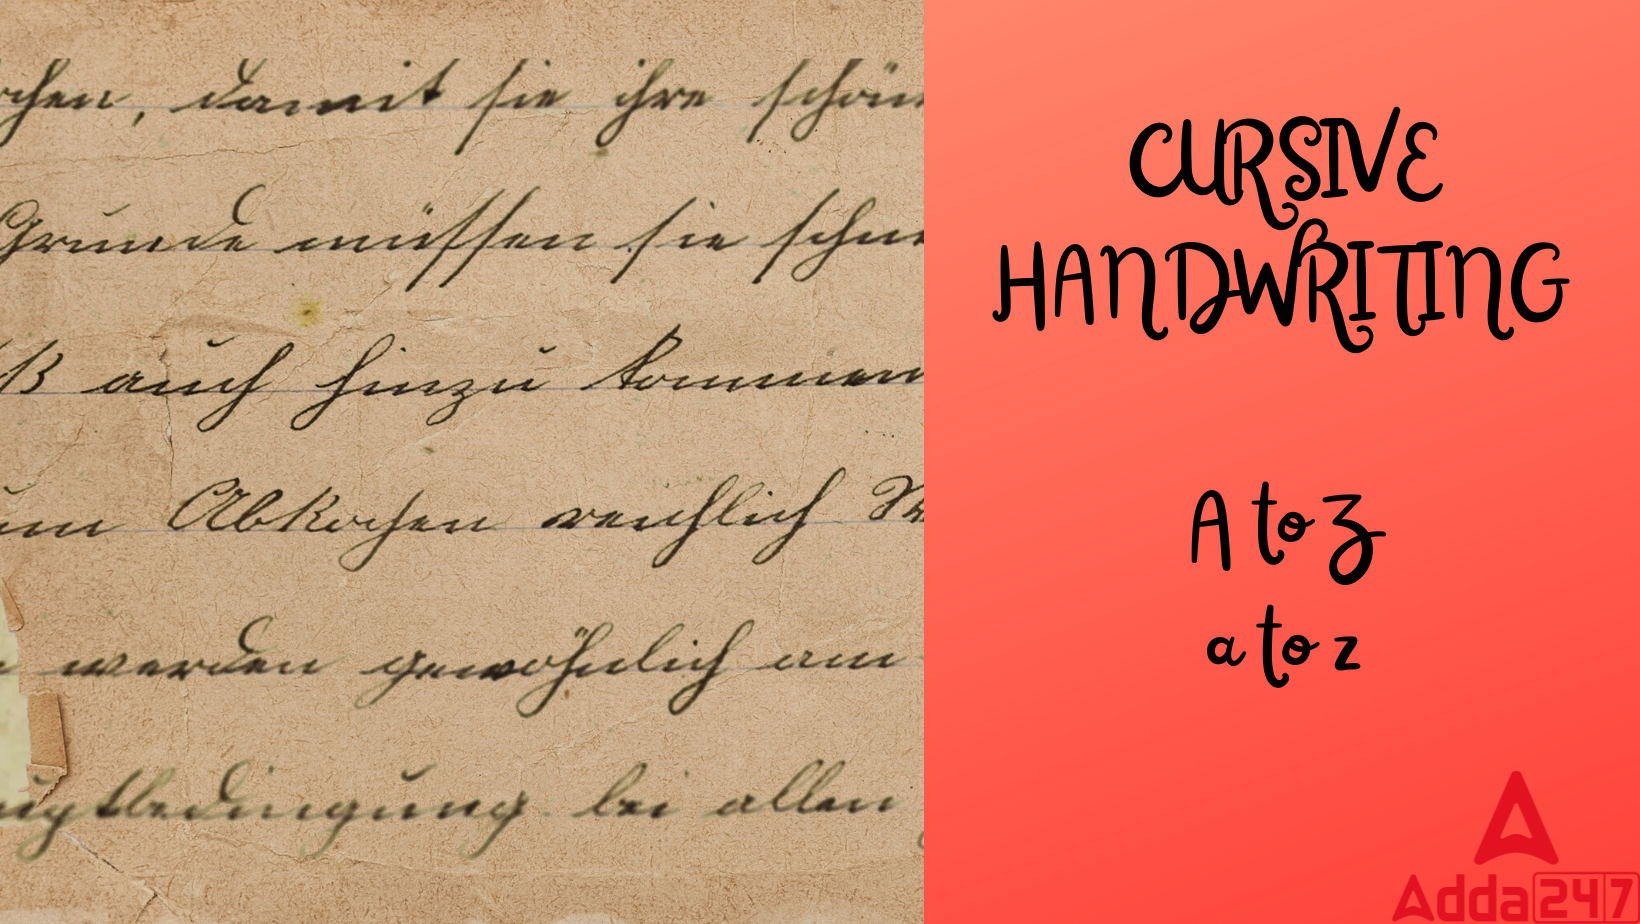 chen, damit sie ihre schön
Grunde müssen sie schn
ß auch hinzu kommen
um Abkochen reichlich W
werden gewöhnlich am
uptbedingung bei allen
CURSIVE
HANDWRITING
A to Z
a to z
Adda247